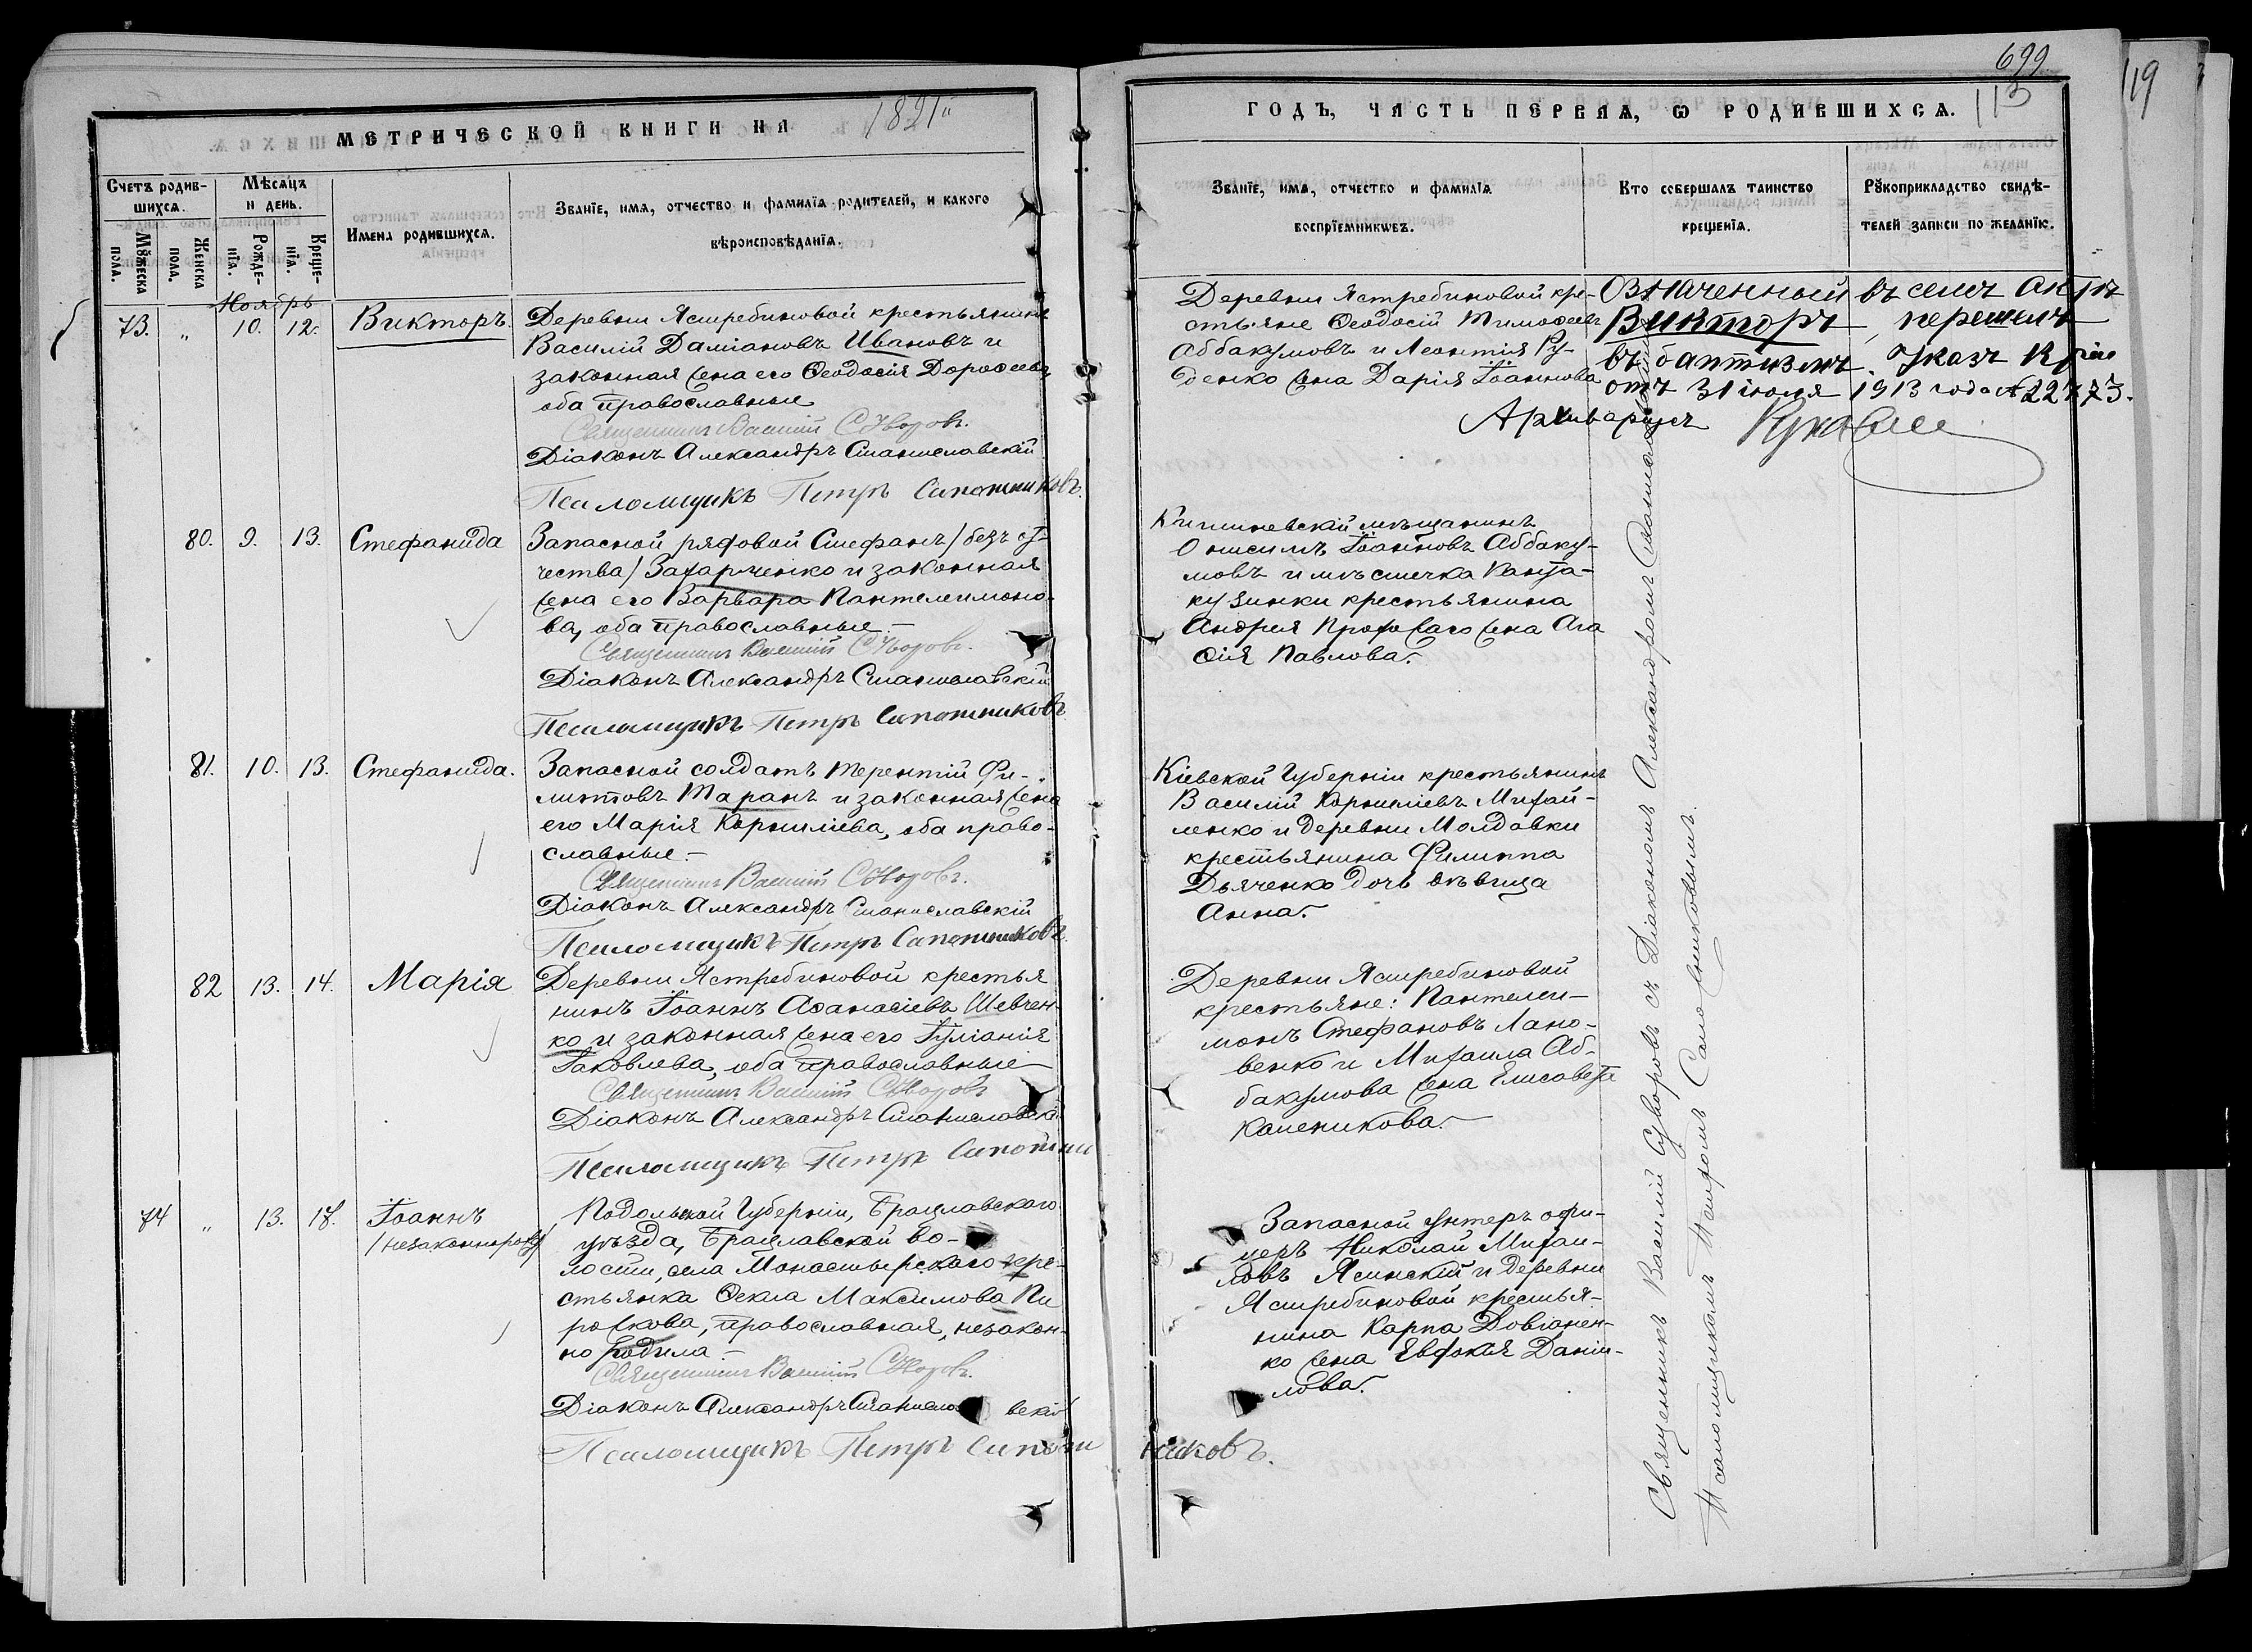 699
119
113
МЕТРИЧЕСКОЙ КНИГИ НА 1891
ГОДЪ, ЧАСТЬ ПЕРВАЯ, Ѡ РОДИВШИХСѦ.
Счетъ родив-
шихсѧ.
Мѣсѧцъ
и день.
Мꙋжеска
пола.
Женска
пола.
Рожде-
нїѧ.
Креще-
нїѧ.
Имена родившихсѧ.
Званїе, имѧ, отчество и фамилїѧ родителей, и какого
вѣроисповѣданїѧ.
Званїе, имѧ, отчество и фамилїѧ
воспрїемникѡвъ.
Кто совершалъ таинство
крещенїѧ.
Рꙋкоприкладство свидѣ-
телей записи по желанїю.
Ноябрь
73. " 10. 12. Викторъ.
Деревни Ястребиновой крестьянинъ
Василій Даміановъ Ивановъ и
законная жена его Ѳеодосія Дороѳеева
оба православные
Священникъ Василій Суворовъ.
Діаконъ Александръ Станиславскій
Псаломщикъ Петръ Сапожниковъ.
Деревни Ястребиновой кре-
стьяне Ѳеодосій Тимоѳеевъ
Аббакумовъ и Леонтія Ру-
денко жена Дарія Іоаннова
Означенный въ семъ актѣ
Викторъ, перешелъ
въ баптизмъ. Указъ
отъ 31 іюля 1913 года № 22773.
Архиваріусъ
80. 9. 13. Стефанида
Запасной рядовой Стефанъ /безъ от-
чества/ Захарченко и законная
жена его Варвара Пантелеимоно-
ва, оба православные.-
Священникъ Василій Суворовъ.
Діаконъ Александръ Станиславскій
Псаломщикъ Петръ Сапожниковъ
Кишиневскій мѣщанинъ
Онисимъ Іоанновъ Аббаку-
мовъ и мѣстечка Канта-
кузинки крестьянина
Андрея жена Ага
ѳія Павлова.
81. 10. 13. Стефанида.
Запасной солдатъ Терентій Фи-
липповъ Таранъ и законная жена
его Марія Корниліева, оба право-
славные.-
Священникъ Василій Суворовъ.
Діаконъ Александръ Станиславскій
Псаломщикъ Петръ Сапожниковъ.
Кіевской Губерніи крестьянинъ
Василій Корниліевъ Михай-
ленко и деревни Молдавки
крестьянина Филиппа
Дьяченко дочь дѣвица
Анна.
82 13. 14. Марія
Деревни Ястребиновой крестья
нинъ Іоаннъ Аѳанасіевъ Шевчен-
ко и законная жена его Іуліанія
Іаковлева, оба православные
Священникъ Василій Суворовъ
Діаконъ Александръ Станиславскій
Псаломщикъ Петръ Сапожни
Деревни Ястребиновой
крестьяне: Пантелеи-
монъ Стефановъ Лано-
венко и Михаила Аб-
бакумова жена Елисавета
Каленикова.
74 " 13. 17. Іоаннъ
/незаконнорож/
Подольской Губерніи, Брацлавскаго
уѣзда, Брацлавской во-
лости, села Монастырскаго кре-
стьянка Ѳекла Максимова Пи
рожкова, православная, незакон-
но родила-
Священникъ Василій Суворовъ.
Діаконъ Александръ Станиславскій
Псаломщикъ Петръ Сапожниковъ.
Запасной унтеръ офи-
церъ Николай Михаи-
ловъ Ясинскій и деревни
Ястребиновой крестья-
нина Карпа Довганен-
ко жена Евфокія Даніи-
лова.
Священникъ Василій Суворовъ съ Діакономъ Александромъ Станиславскимъ
Псаломщикомъ Петромъ Сапожниковымъ.